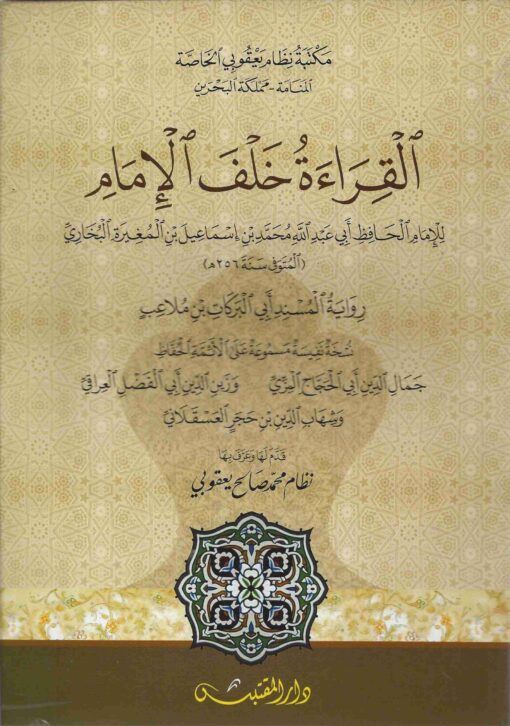 مَكْتَبَة نِظَام يَعْقُوبِي الخَاصَّة
المَنَامَة - مَمْلَكَة البَحْرَيْن
ٱلْقِرَاءَةُ خَلْفَ ٱلْإِمَامِ
لِلْإِمَامِ ٱلْحَافِظِ أَبِي عَبْدِ ٱللَّهِ مُحَمَّدِ بْنِ إِسْمَاعِيلَ بْنِ ٱلْمُغِيرَةِ ٱلْبُخَارِيِّ
(المُتَوَفَّى سَنَةَ ٢٥٦ هـ)
رِوَايَةُ ٱلْمُسْنِدِ أَبِي ٱلْبَرَكَاتِ بْنِ مُلَاعِبٍ
نُسْخَةٌ نَفِيسَةٌ مَسْمُوعَةٌ عَلَى ٱلْأَئِمَّةِ ٱلْحُفَّاظِ
جَمَالِ الدِّينِ أَبِي الْحَجَّاجِ الْمِزِّيِّ وَزَيْنِ الدِّينِ أَبِي الْفَضْلِ الْعِرَاقِيِّ
وَشِهَابِ الدِّينِ بْنِ حَجَرٍ الْعَسْقَلَانِيِّ
قَدَّمَ لَهَا وَعَرَّفَ بِهَا
نظام محمد صالح يعقوبي
دار المقتبس